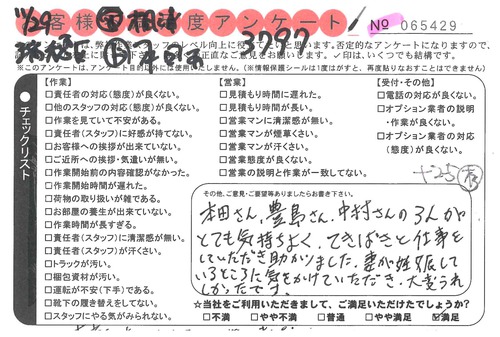 11/29
お客様満足度アンケート
№ 065429
3797
✓印は、いくつでも結構です。
※このアンケートは、アンケート目的以外には使用いたしません。(※情報保護シールは1度はがすと、再度貼りなおすことはできません)
チェックリスト
【作業】
□責任者の対応(態度)が良くない。
□他のスタッフの対応(態度)が良くない。
□作業を見ていて不安がある。
□責任者(スタッフ)に好感が持てない。
□お客様への挨拶が出来ていない。
□ご近所への挨拶・気遣いが無い。
□作業開始前の内容確認がなかった。
□作業開始時間が遅れた。
□荷物の取り扱いが雑である。
□お部屋の養生が出来ていない。
□作業時間が長すぎる。
□責任者(スタッフ)に清潔感が無い。
□責任者(スタッフ)が汗くさい。
□トラックが汚い。
□梱包資材が汚い。
□運転が安全(下手)である。
□靴下の履き替えをしてない。
□スタッフにやる気がみられない。
【営業】
□見積もり時間に遅れた。
□見積もり時間が長い。
□営業マンに清潔感が無い。
□営業マンが煙草くさい。
□営業マンが汗くさい。
□営業態度が良くない。
□営業の説明と作業が一致してない。
【受付・その他】
□電話の対応が良くない。
□オプション業者の説明・作業が良くない。
□オプション業者の対応(態度)が良くない。
その他、ご意見・ご要望等ありましたらお書き下さい。
本田さん、豊島さん、中村さんの3人が
とても気持ちよく、てきぱきと仕事を
していただき助かりました。妻が妊娠して
いるところに気をかけていただき、大変うれ
しかったです。
☆当社をご利用いただきまして、ご満足いただけたでしょうか?
□不満 □やや不満 □普通 □やや満足 ☑満足